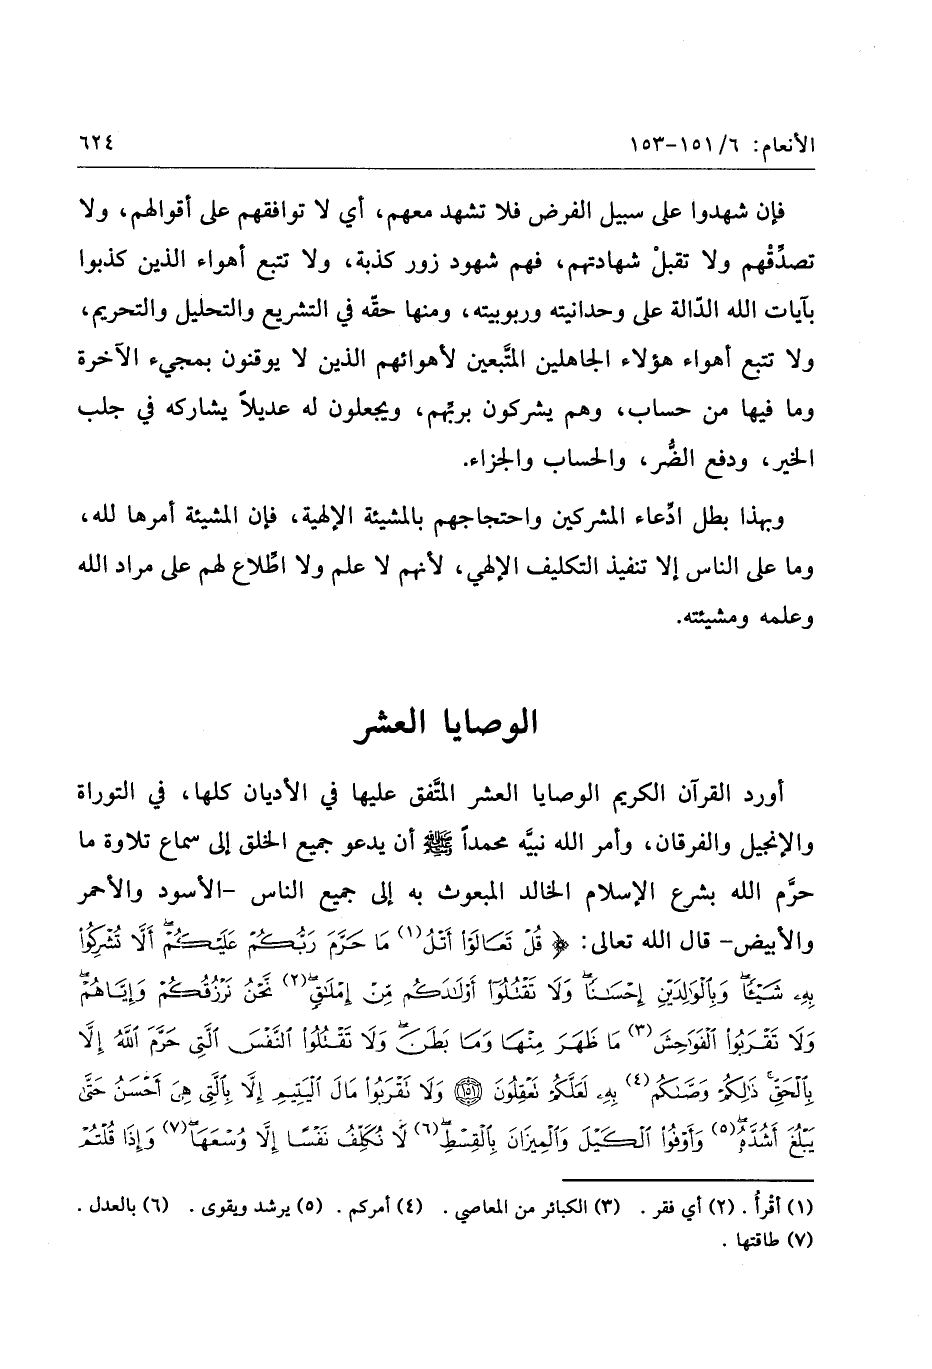 الأنعام: ٦/ ١٥١-١٥٣ ٦٢٤
فإن شهدوا على سبيل الفرض فلا تشهد معهم، أي لا توافقهم على أقوالهم، ولا
تصدِّقْهم ولا تقبلْ شهادتهم، فهم شهود زور كذبة، ولا تتبع أهواء الذين كذبوا
بآيات الله الدّالة على وحدانيته وربوبيته، ومنها حقّه في التشريع والتحليل والتحريم،
ولا تتبع أهواء هؤلاء الجاهلين المتَّبعين لأهوائهم الذين لا يوقنون بمجيء الآخرة
وما فيها من حساب، وهم يشركون بربِّهم، ويجعلون له عديلاً يشاركه في جلب
الخير، ودفع الضُّر، والحساب والجزاء.
وبهذا بطل ادِّعاء المشركين واحتجاجهم بالمشيئة الإلهية، فإن المشيئة أمرها لله،
وما على الناس إلا تنفيذ التكليف الإلهي، لأنهم لا علم ولا اطِّلاع لهم على مراد الله
وعلمه ومشيئته.
الوصايا العشر
أورد القرآن الكريم الوصايا العشر المتَّفق عليها في الأديان كلها، في التوراة
والإنجيل والفرقان، وأمر الله نبيَّه محمداً ﷺ أن يدعو جميع الخلق إلى سماع تلاوة ما
حرَّم الله بشرع الإسلام الخالد المبعوث به إلى جميع الناس -الأسود والأحمر
والأبيض- قال الله تعالى: ﴿ قُلْ تَعَالَوْا أَتْلُ(١) مَا حَرَّمَ رَبُّكُمْ عَلَيْكُمْ ۖ أَلَّا تُشْرِكُوا
بِهِۦ شَيْـًٔا ۖ وَبِٱلْوَٰلِدَيْنِ إِحْسَـٰنًا ۖ وَلَا تَقْتُلُوٓا أَوْلَـٰدَكُم مِّنْ إِمْلَـٰقٍ ۖ(٢) نَّحْنُ نَرْزُقُكُمْ وَإِيَّاهُمْ ۖ
وَلَا تَقْرَبُوا ٱلْفَوَٰحِشَ(٣) مَا ظَهَرَ مِنْهَا وَمَا بَطَنَ ۖ وَلَا تَقْتُلُوا ٱلنَّفْسَ ٱلَّتِى حَرَّمَ ٱللَّهُ إِلَّا
بِٱلْحَقِّ ۚ ذَٰلِكُمْ وَصَّىٰكُم(٤) بِهِۦ لَعَلَّكُمْ تَعْقِلُونَ ﴿١٥١﴾ وَلَا تَقْرَبُوا مَالَ ٱلْيَتِيمِ إِلَّا بِٱلَّتِى هِىَ أَحْسَنُ حَتَّىٰ
يَبْلُغَ أَشُدَّهُۥ ۖ(٥) وَأَوْفُوا ٱلْكَيْلَ وَٱلْمِيزَانَ بِٱلْقِسْطِ ۖ(٦) لَا نُكَلِّفُ نَفْسًا إِلَّا وُسْعَهَا ۖ(٧) وَإِذَا قُلْتُمْ
(١) أقْرأُ . (٢) أي فقر . (٣) الكبائر من المعاصي . (٤) أمركم . (٥) يرشد ويقوى . (٦) بالعدل .
(٧) طاقتها .